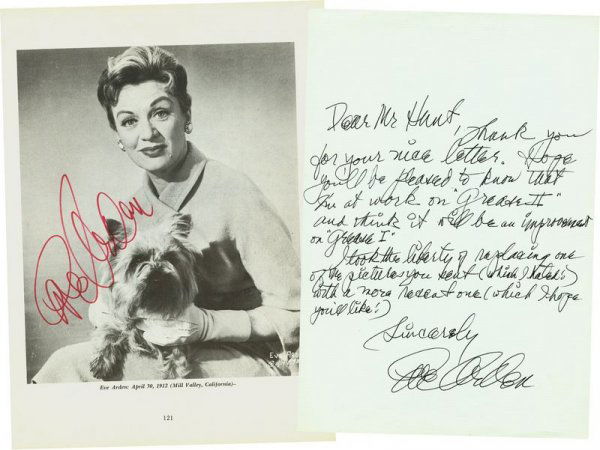 Eve Arden
Eve Arden; April 30, 1912 (Mill Valley, California)–
121
Dear Mr Hunt,
Thank you
for your nice letter. Hope
you'll be pleased to know that
I'm at work on "Grease II"
and think it will be an improvement
on "Grease I".
I took the liberty of replacing one
of the pictures you sent (which I hated!)
with a more recent one (which I hope
you'll like!)
Sincerely
Eve Arden